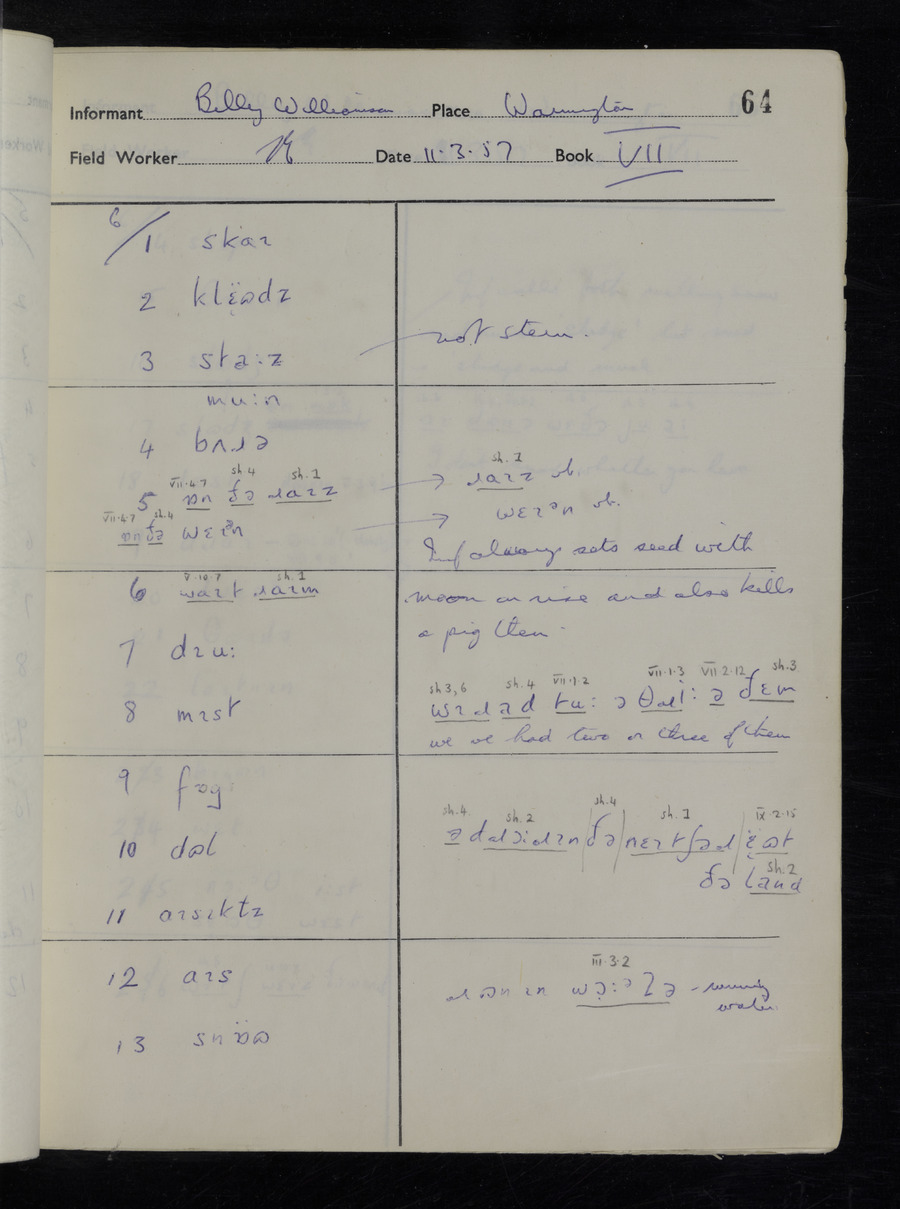 Informant Billy Williamson Place Warrington 64
Field Worker Date 11·3·57 Book VII
6/1 skaɪ
2 klɛ̈ʊdz
3 sta:z
not stem.
mu:n
4 bʌɹə
5 ɒn ðə ɹaɪz
VII·4·7 sh.4 sh.1
ɹaɪz vb.
sh.1
VII·4·7 sh.4
ɒn ðə wɛɪn
wɛɪən vb.
Inf always sets seed with
moon on rise and also kills
a pig then.
V·10·7 sh.1
6 waɪt ɹaɪm
7 dɪu:
8 mɪst
sh.3,6 sh.4 VII·1·2 VII·1·3 VII 2·12 sh.3
wɪ əd tu: ə θɹi: ə ðɛm
we've had two or three of them
9 fɒg
10 dəl
sh.4. sh.2 sh.4 sh.1 IX·2·15
ðə land
sh.2
11 aɪsɪktz
12 aɪs
III·3·2
- running
water.
13 snɒ̈ʊ